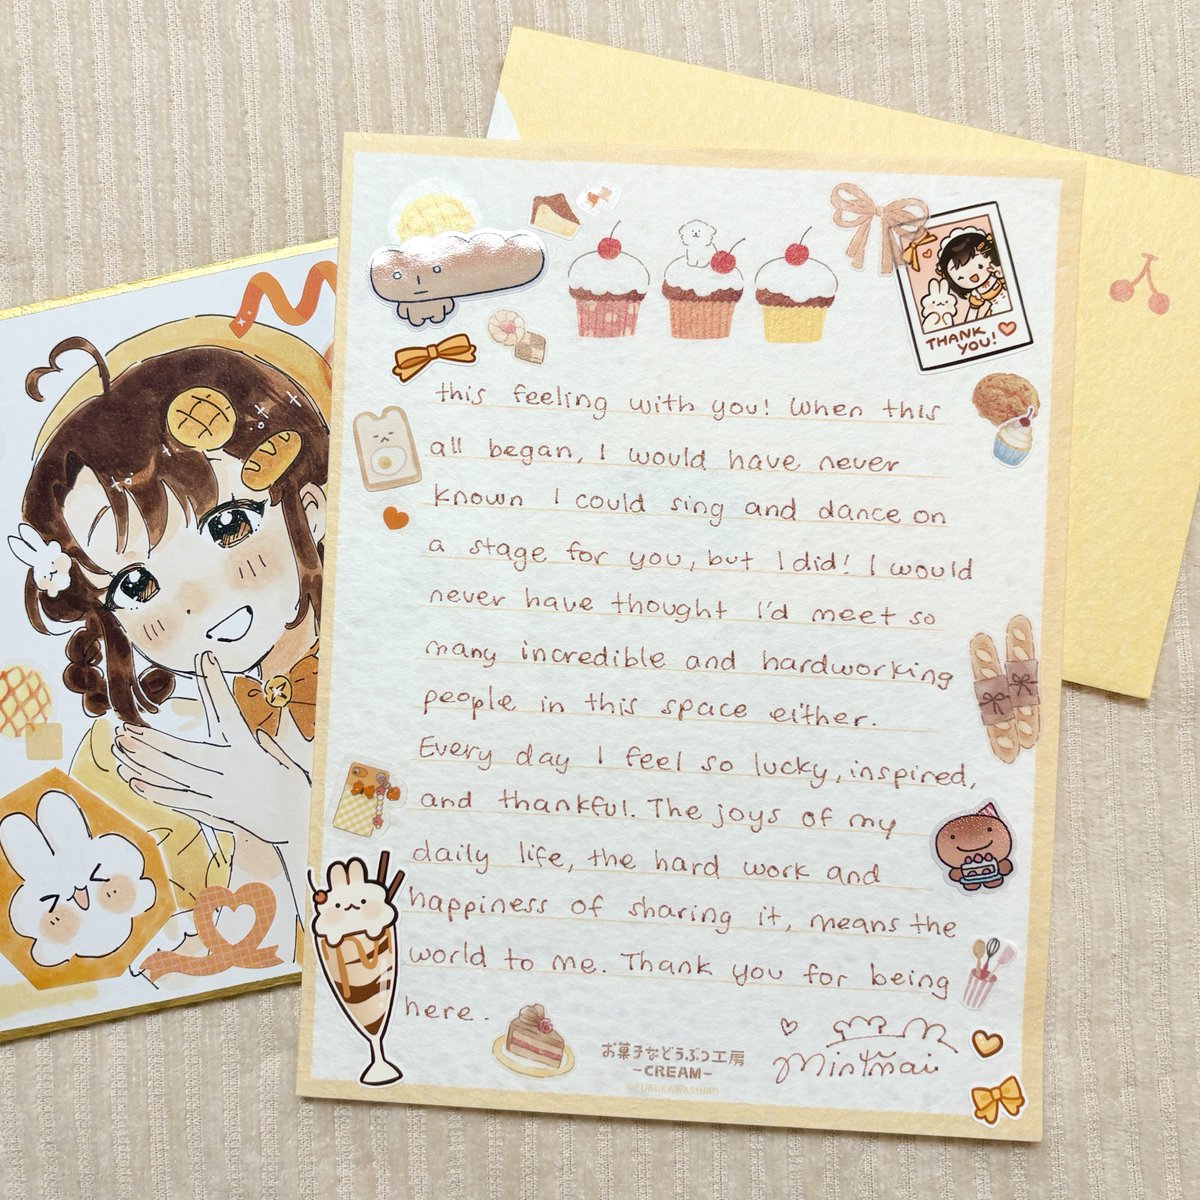 THANK
YOU!
this feeling with you! When this
all began, I would have never
known I could sing and dance on
a stage for you, but I did! I would
never have thought I'd meet so
many incredible and hardworking
people in this space either.
Every day I feel so lucky, inspired,
and thankful. The joys of my
daily life, the hard work and
happiness of sharing it, means the
world to me. Thank you for being
here.
お菓子などうぶつ工房
-CREAM-
©FURUKAWASHIKO
Mintmai